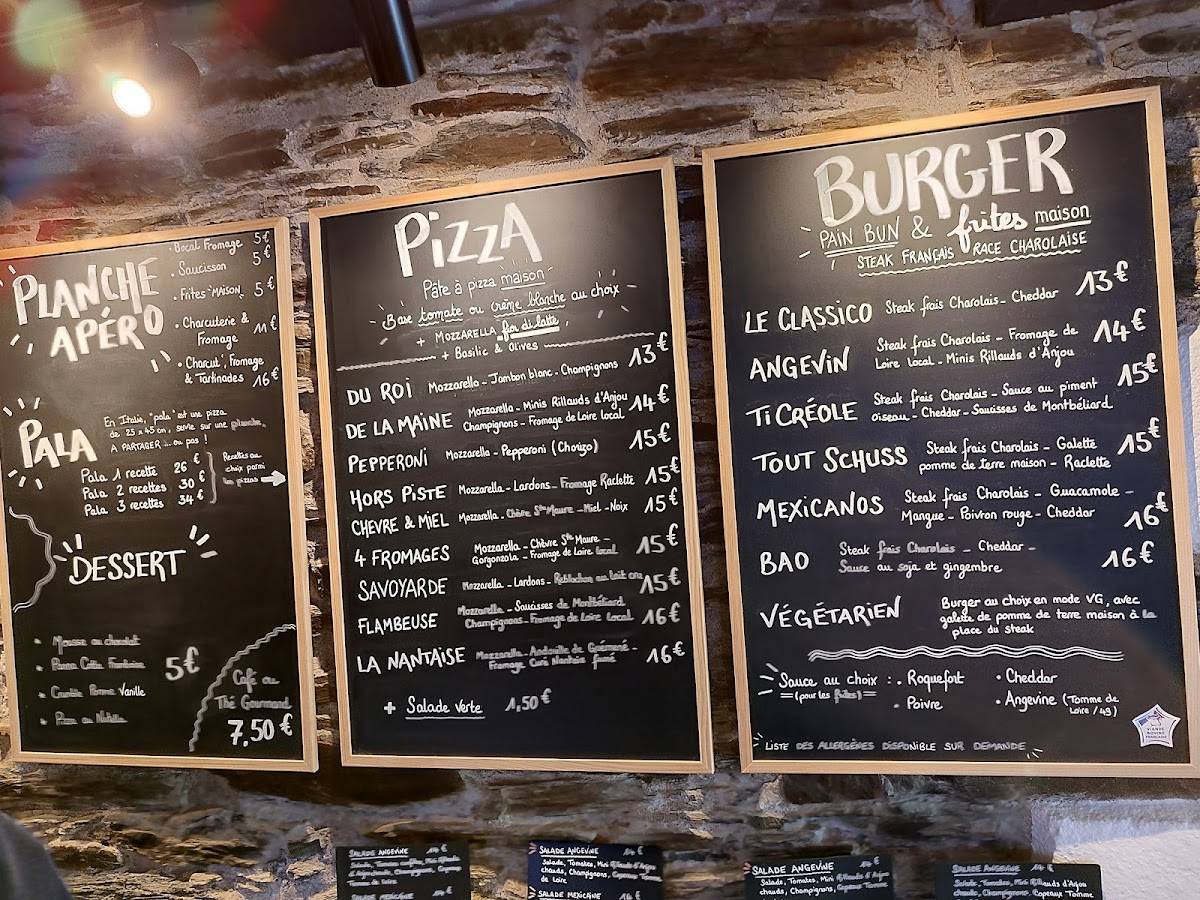 PLANCHE
APÉRO
. Bocal Fromage 5€
. Saucisson 5€
. Frites MAISON 5€
. Charcuterie &
Fromage 11€
. Charcut', Fromage
& Tartinades 16€
PALA
En Italie, "pala" est une pizza
de 25 x 45 cm, servie sur une planche,
A PARTAGER ... ou pas !
Pala 1 recette 26 €
Pala 2 recettes 30 €
Pala 3 recettes 34 €
Recettes au
choix parmi
les pizzas
DESSERT
Mousse au chocolat
Panna Cotta
Vanille
Pizza au Nutella
5€
Café ou
Thé Gourmand
7,50 €
PIZZA
Pâte à pizza maison
Base tomate ou crème blanche au choix
+ MOZZARELLA fior di latte
+ Basilic & Olives
DU ROI Mozzarella - Jambon blanc - Champignons 13€
DE LA MAINE Mozzarella - Minis Rillauds d'Anjou
Champignons - Fromage de Loire local 14€
PEPPERONI Mozzarella - Pepperoni (Chorizo) 15€
HORS PISTE Mozzarella - Lardons - Fromage Raclette 15€
CHEVRE & MIEL Mozzarella - Chèvre Ste Maure - Miel - Noix 15€
4 FROMAGES Mozzarella - Chèvre Ste Maure -
Gorgonzola - Fromage de Loire local 15€
SAVOYARDE Mozzarella - Lardons - Reblochon au lait cru 15€
FLAMBEUSE Mozzarella - Saucisses de Montbéliard
Champignons - Fromage de Loire local 16€
LA NANTAISE Mozzarella - Andouille de Guémené -
Fromage Curé Nantais fumé 16€
+ Salade Verte 1,50 €
BURGER
PAIN BUN & frites maison
STEAK FRANÇAIS RACE CHAROLAISE
LE CLASSICO Steak frais Charolais - Cheddar 13€
ANGEVIN Steak frais Charolais - Fromage de
Loire local - Minis Rillauds d'Anjou 14€
TI CRÉOLE Steak frais Charolais - Sauce au piment
oiseau - Cheddar - Saucisses de Montbéliard 15€
TOUT SCHUSS Steak frais Charolais - Galette
pomme de terre maison - Raclette 15€
MEXICANOS Steak frais Charolais - Guacamole -
Mangue - Poivron rouge - Cheddar 16€
BAO Steak frais Charolais - Cheddar -
Sauce au soja et gingembre 16€
VÉGÉTARIEN Burger au choix en mode VG, avec
galette de pomme de terre maison à la
place du steak
Sauce au choix : . Roquefort . Cheddar
(pour les frites) . Poivre . Angevine (Tomme de
Loire / 49)
LISTE DES ALLERGÈNES DISPONIBLE SUR DEMANDE
VIANDE
BOVINE
FRANÇAISE
SALADE ANGEVINE 14€
Tomme de Loire
SALADE MEXICAINE
SALADE ANGEVINE 14€
Salade, Tomates, Mini Rillauds d'Anjou
chauds, Champignons, Copeaux Tomme
de Loire
SALADE MEXICAINE 14€
SALADE ANGEVINE 14€
Salade, Tomates, Mini Rillauds d'Anjou
chauds, Champignons, Copeaux Tomme
SALADE ANGEVINE 14€
Salade, Tomates, Mini Rillauds d'Anjou
chauds, Champignons, Copeaux Tomme